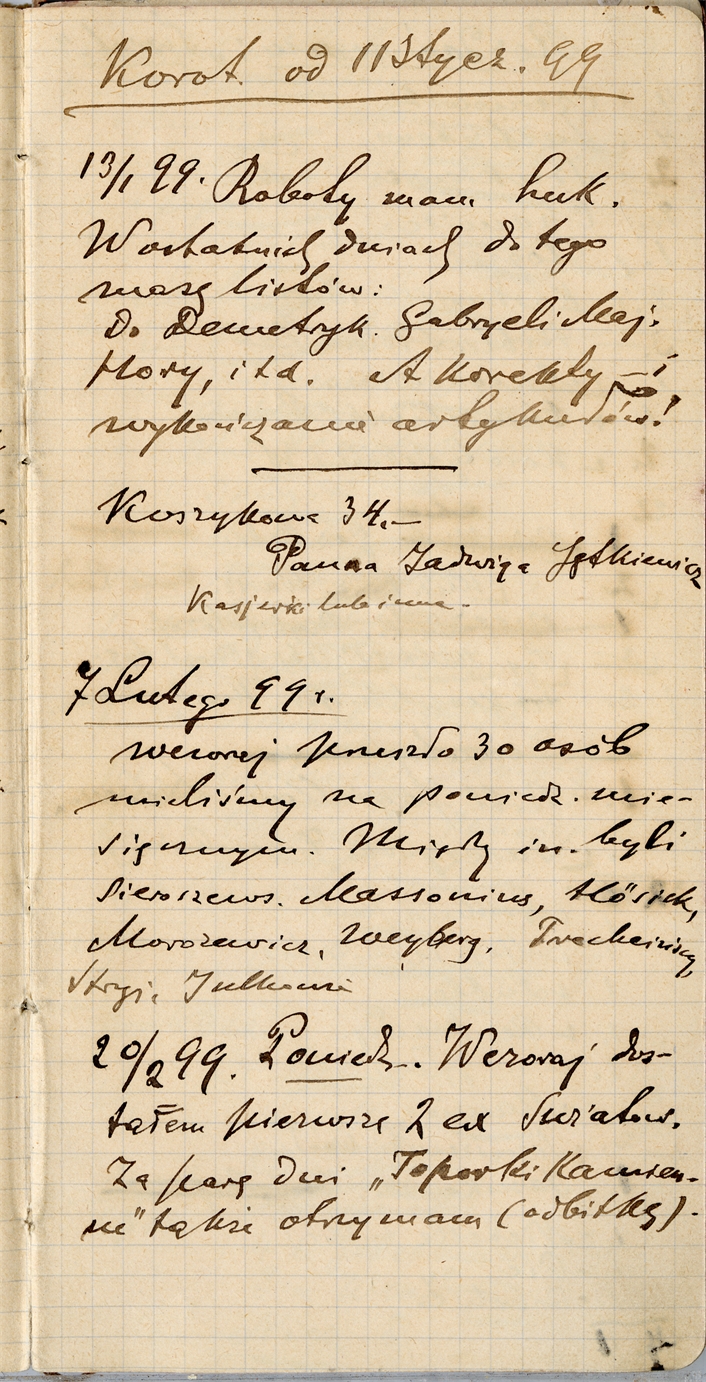 Korot od 11 Stycz. 99
13/1 99. Roboty mam huk.
W ostatnich dniach do tego
masę listów:
Do Demetryk. Gabryeli Maj.
Hory, itd. A korekty – i
wykończanie artykułów!
Koszykowa 34.–
Panna Jadwiga Jętkiewicz
lub inne.
7 Lutego 99 r.
wczoraj przeszło 30 osób
mieliśmy na poniedz. mie-
sięcznym. Między in. byli
Sieroszews. Massonius, Hösick,
Morozewicz, Weyberg, Trzciński,
Stryj.
20/2 99. Poniedz. Wczoraj dos-
tałem pierwsze 2 ex Światow.
Za parę dni „Toporki Kamien-
ne" także otrzymam (odbitkę).